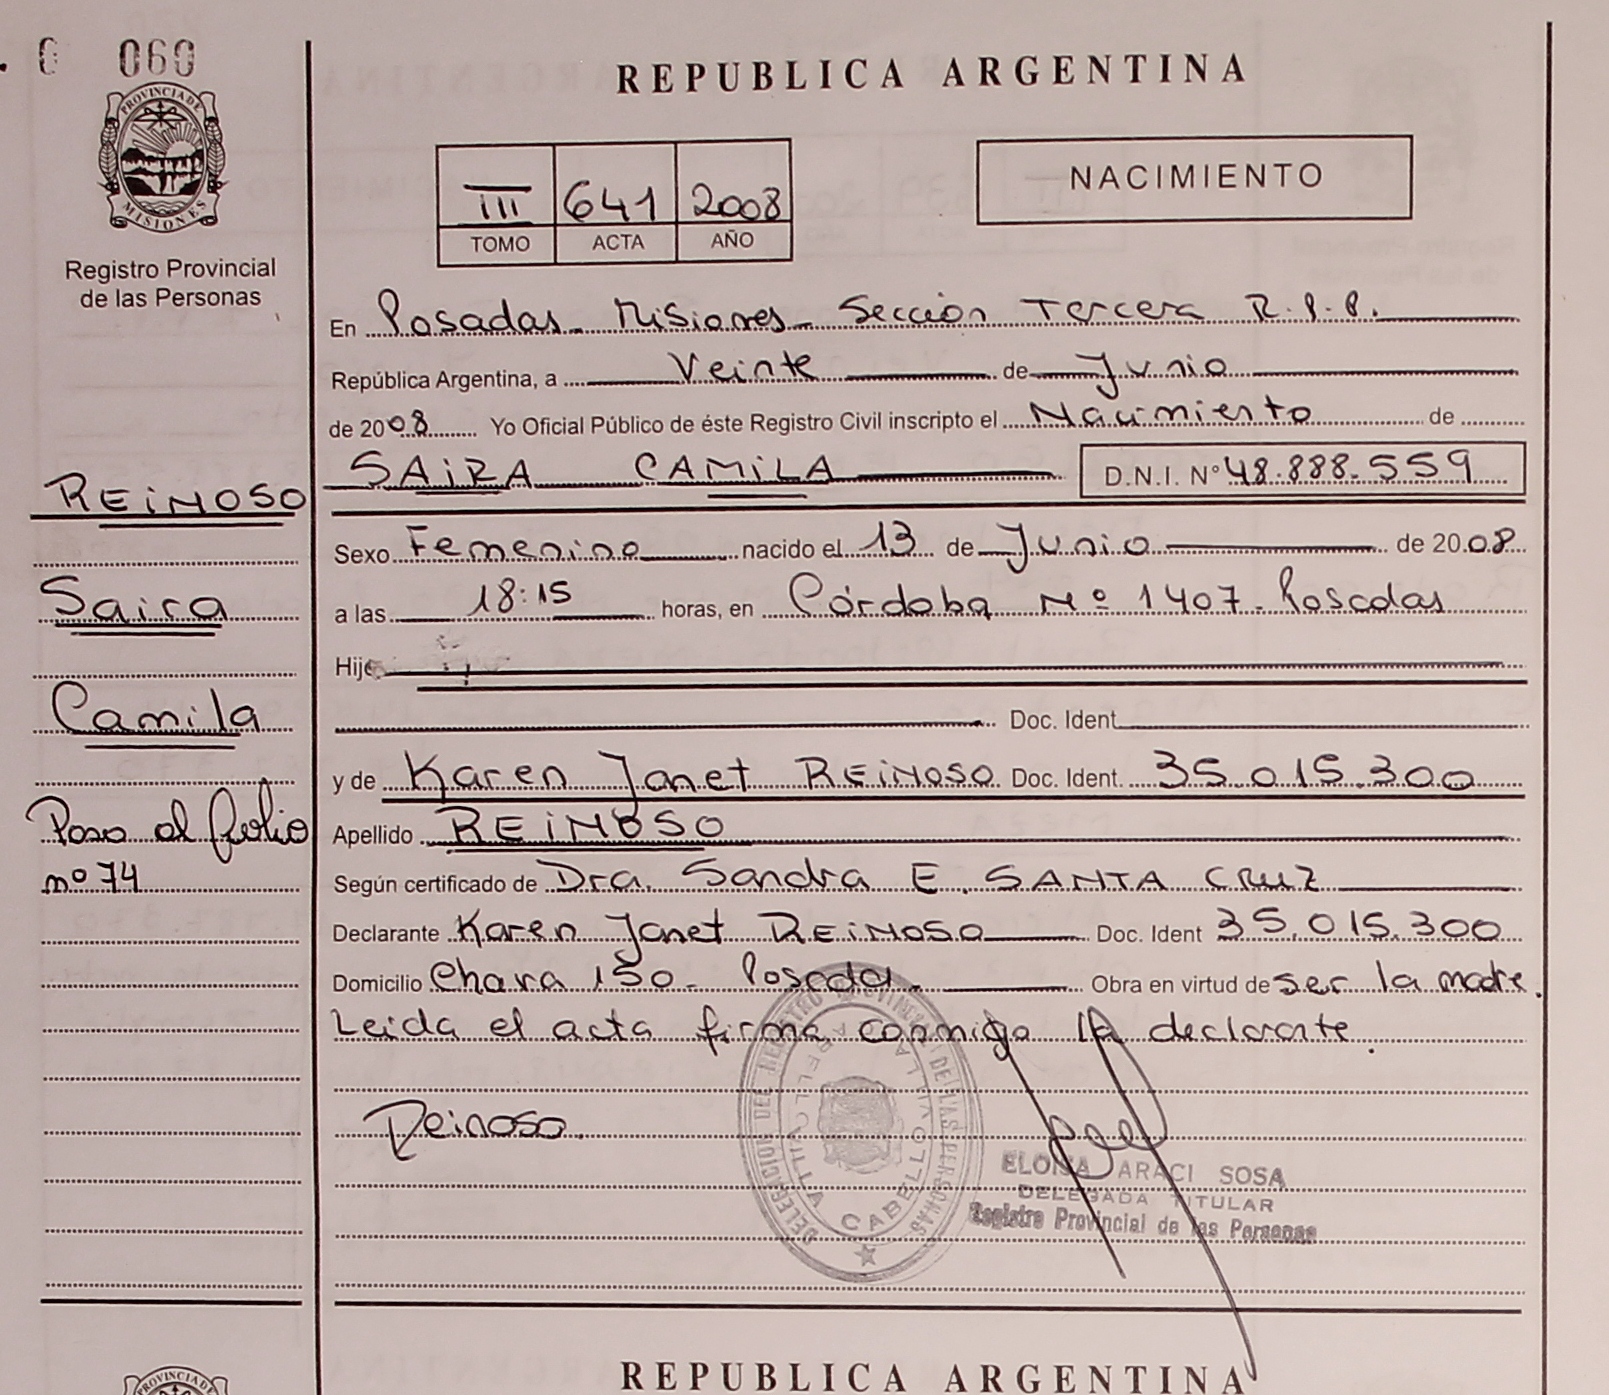 060
PROVINCIA DE
MISIONES
Registro Provincial
de las Personas
REPUBLICA ARGENTINA
NACIMIENTO
III 641 2008
TOMO ACTA AÑO
En Posadas - Misiones - Sección Tercera R.P.P.
República Argentina, a Veinte de Junio
de 2008 Yo Oficial Público de éste Registro Civil inscripto el Nacimiento de
SAIRA CAMILA D.N.I. Nº 48.888.559
REINOSO
Sexo Femenino nacido el 13 de Junio de 2008
Saira
a las 18:15 horas, en Córdoba Nº 1407 - Posadas
Hij
Camila
Doc. Ident.
y de Karen Janet REINOSO Doc. Ident. 35.015.300
Paso al folio
nº 74
Apellido REINOSO
Según certificado de Dra. Sandra E. SANTA CRUZ
Declarante Karen Janet REINOSO Doc. Ident 35.015.300
Domicilio Chara 150 - Posadas Obra en virtud de ser la madre.
Leida el acta firma conmigo la declarante.
Reinoso
DELEGACION DEL REGISTRO PROVINCIAL DE LAS PERSONAS
VILLA CABELLO
ELOISA ARACI SOSA
DELEGADA TITULAR
Registro Provincial de las Personas
REPUBLICA ARGENTINA
PROVINCIA DE